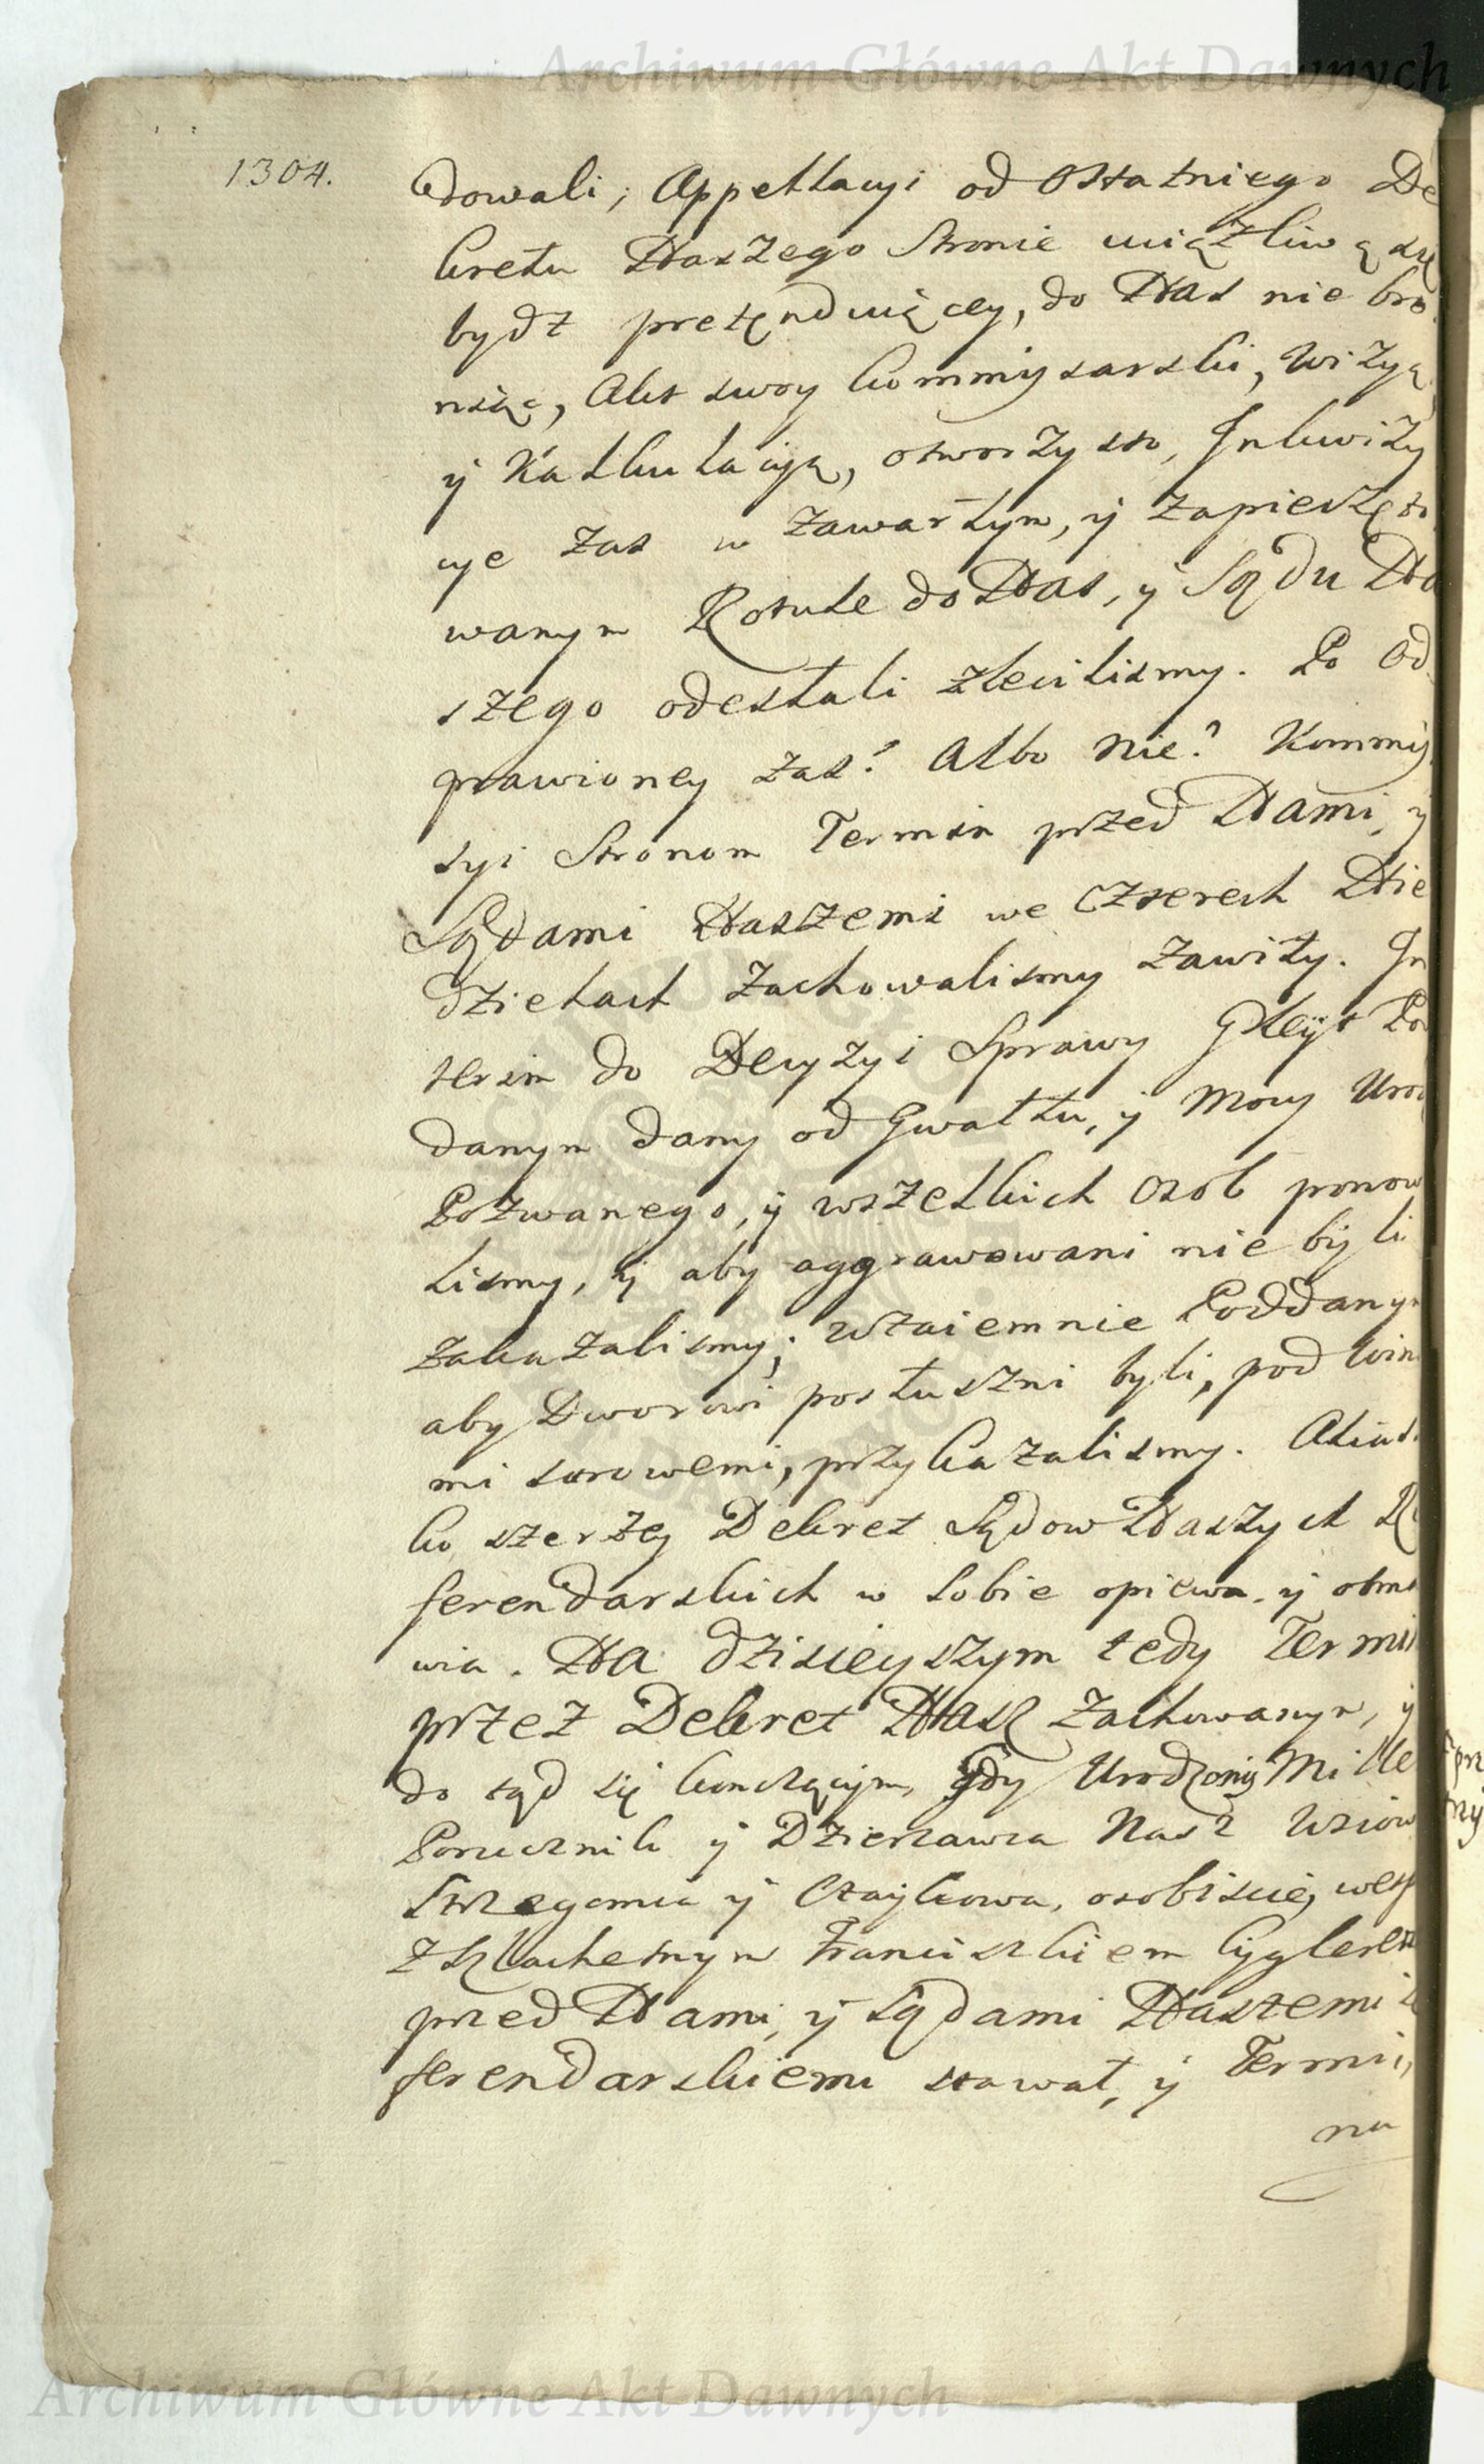 Archiwum Główne Akt Dawnych
1304.
dowali, Appellacyi od Ostatniego De
kretu Naszego Stronie uciążliwą się
bydź pretęnduiącey, do Nas nie bro
niąc, Akt swoy kommisarski, Wizyą
y Kalkulacyą, otworzysto, Inkwizy
cye zas w zawartym, y zapieczęto
wanym Rotule do Nas, y Sądu Na
szego odestali zlecilismy. Po Od
prawioney zas? Albo nie? Kommis
syi Stronom Termin przed Nami, y
Sądami Naszemi we czterech Nie
dzielach zachowalismy zawity. In
terim do Decyzyi Sprawy Gleyt Pod
danym dany od Gwałtu, y Mocy Uro
Pozwanego, y wszelkich Osob ponow
lismy, y aby aggrawowani nie byli
zakazalismy; wzaiemnie Poddanym
aby Dworowi posłuszni byli, pod win
mi surowemi, przykazalismy. Alias
ko szerzey Dekret Sądow Naszych Re
ferendarskich w sobie opiewa, y obma
wia. Na dzisieyszym tedy Termi
przez Dekret Nasz zachowanym, y
do tąd się kończącym, gdy Urodzony Mille
Porucznik y Dzierzawca Nasz Wsiow
Strzegomia y Czaykowa, osobiscie, wesp
z Szlachetnym Franciszkiem Cyglerem
przed Nami, y Sądami Naszemi
ferendarskiemi stawał, y Termi,
nu
Archiwum Główne Akt Dawnych